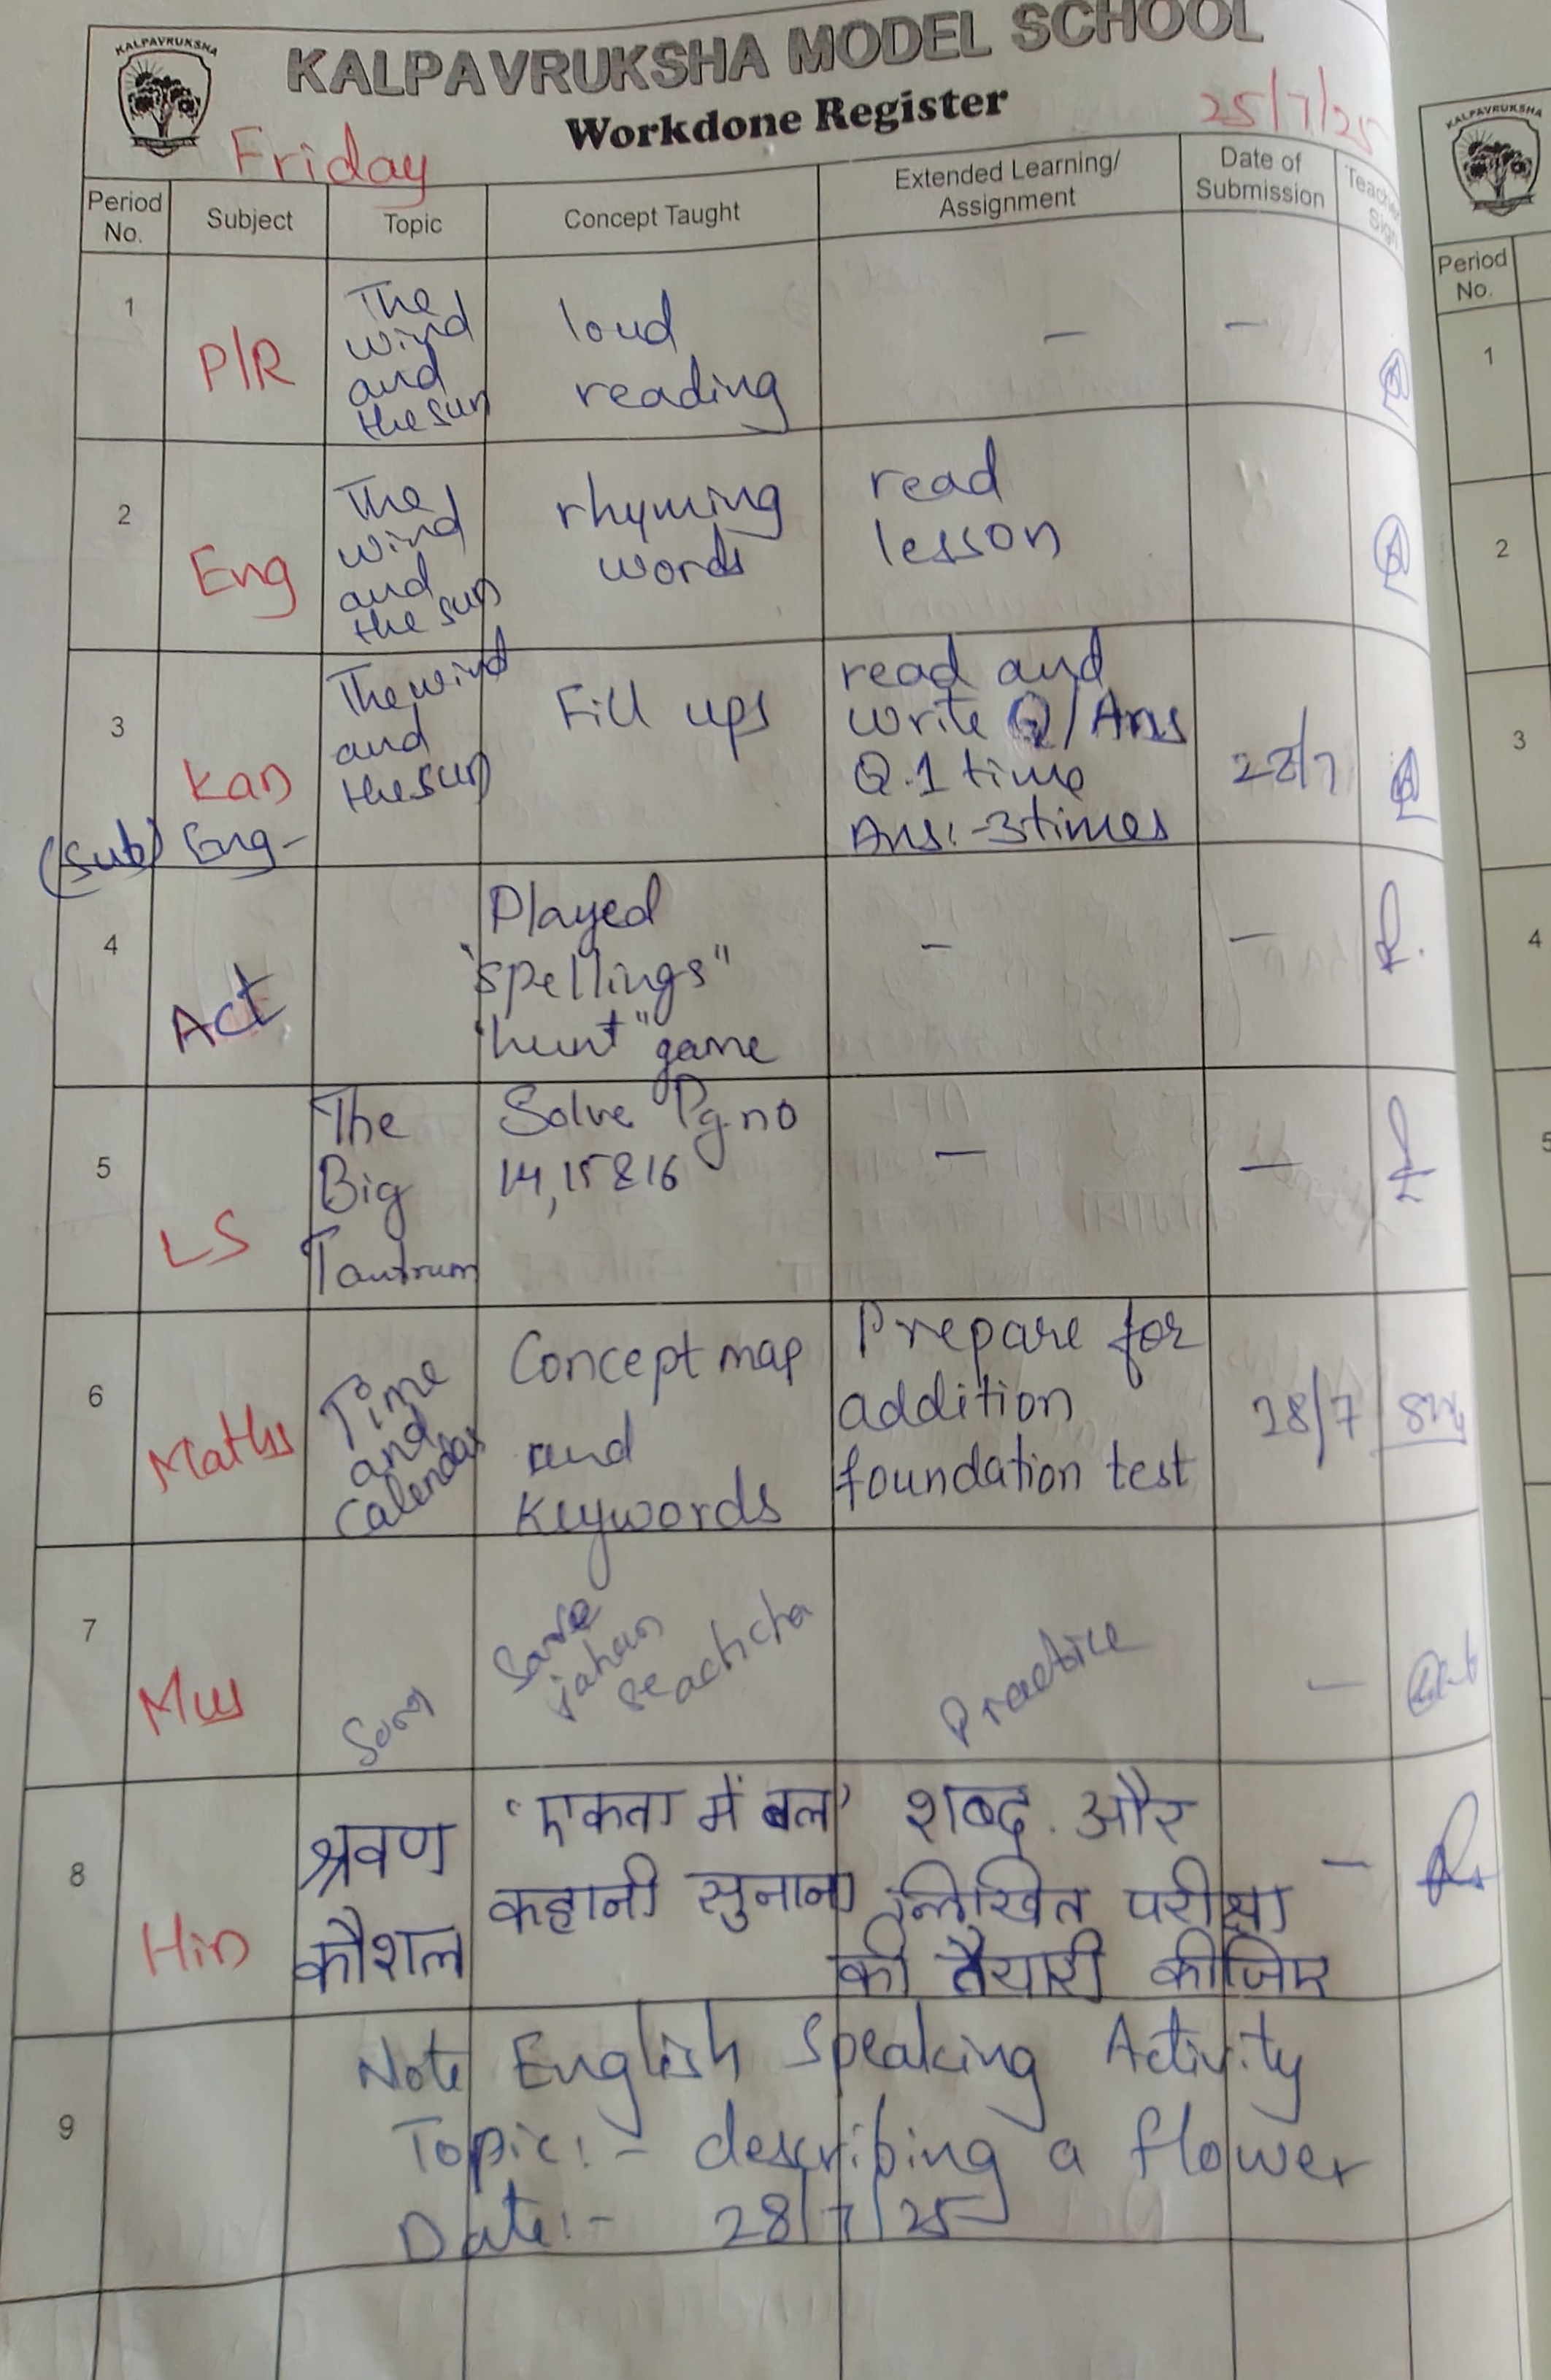 KALPAVRUKSHA
KALPAVRUKSHA MODEL SCHOOL
Workdone Register
Friday
25/7/25
Period No.
Subject
Topic
Concept Taught
Extended Learning/ Assignment
Date of Submission
Teacher Sign
1
P/R
The
wind
and
the sun
loud
reading
-
-
2
Eng
The
wind
and
the sun
rhyming
words
read
lesson
3
Kan
(Sub) Eng-
The wind
and
the sun
Fill ups
read and
write Q/Ans
Q.1 time
Ans:-3times
28/7
4
Act
Played
"spellings"
"hunt" game
-
-
5
LS
The
Big
Tantrum
Solve Pg.no
14,15&16
-
-
6
Maths
Time
and
Calendar
Concept map
and
Keywords
Prepare for
addition
foundation test
28/7
7
Mus
Song
Sare
jahan
se achcha
Practice
-
8
Hin
श्रवण
कौशल
'एकता में बल'
कहानी सुनाना
शब्द और
लिखित परीक्षा
की तैयारी कीजिए
-
9
Note English Speaking Activity
Topic:- describing a flower
Date:- 28/7/25
KALPAVRUKSHA
Period
No.
1
2
3
4
5